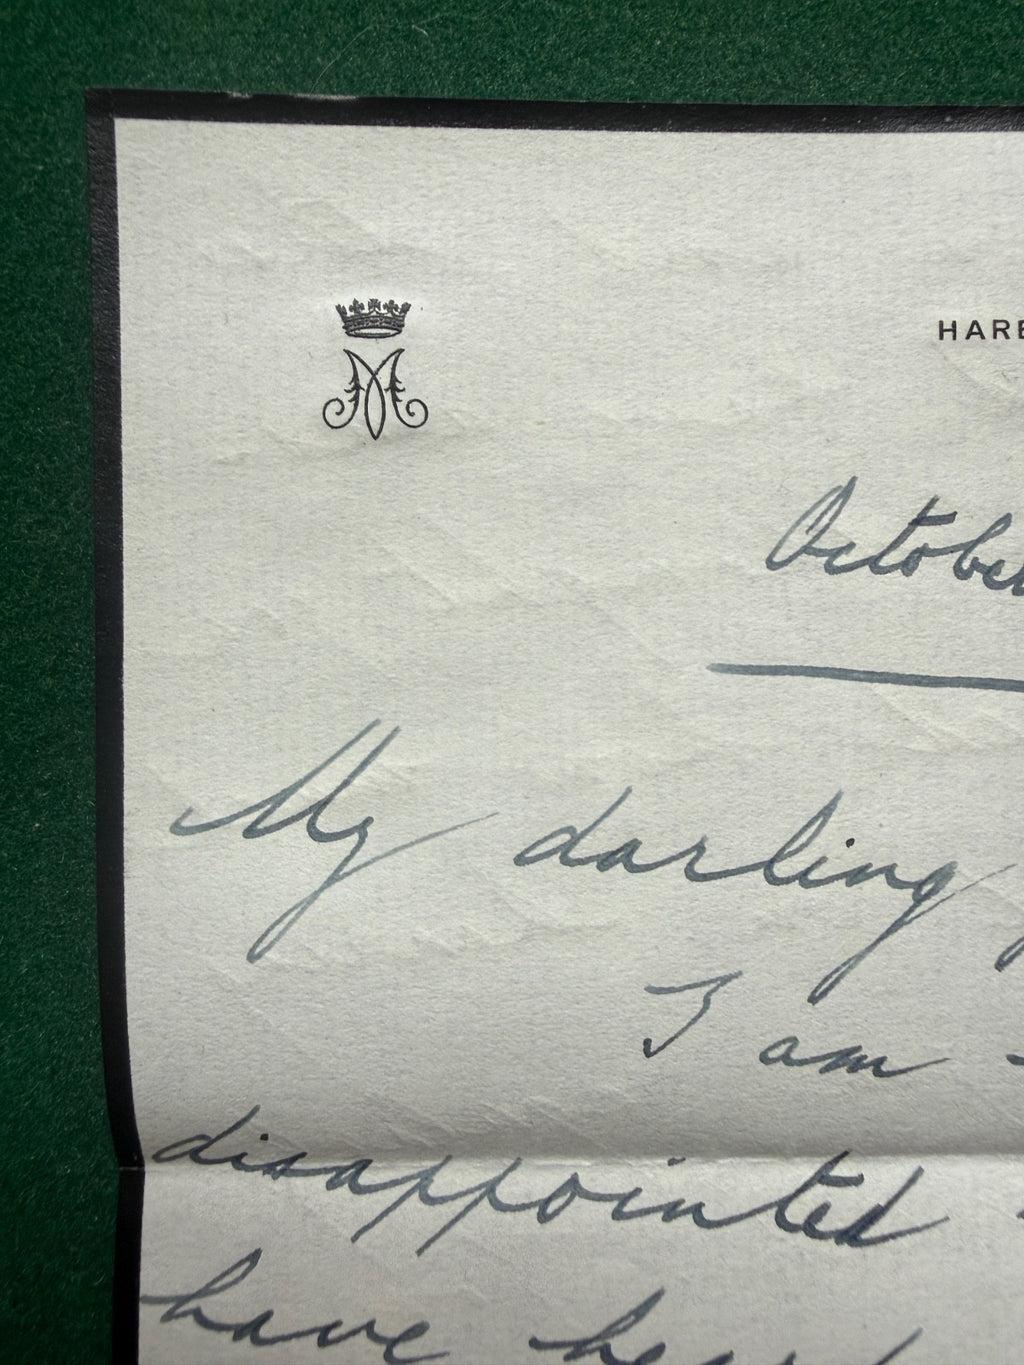 M
HARE
October
My darling
I am
disappointed
have